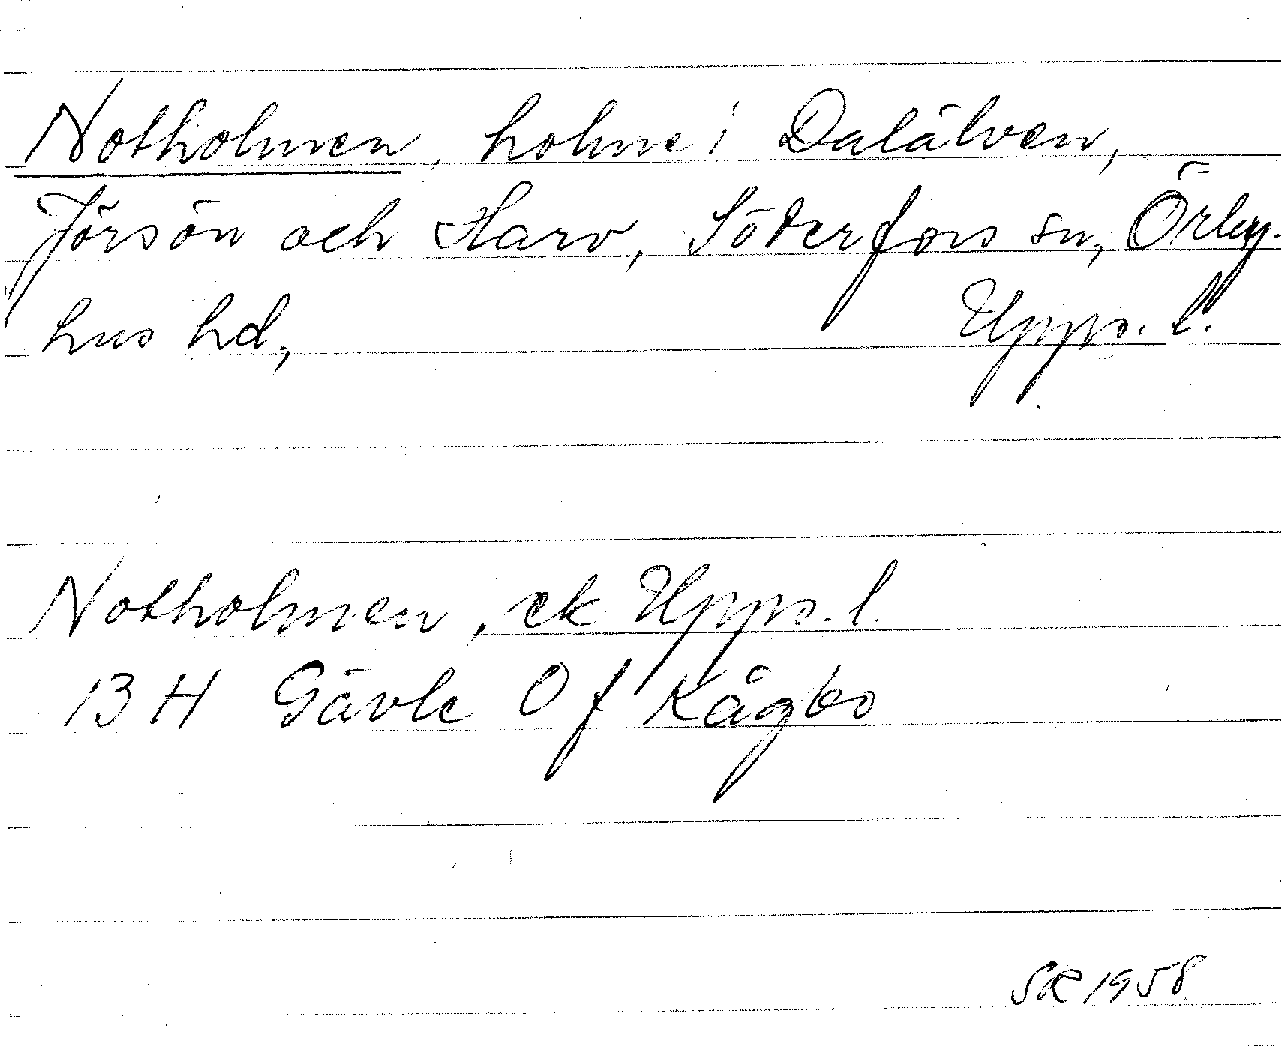 Notholmen, holme i Dalälven,
Jörsön och Harv, Söderfors sn, Örby-
hus hd, Upps. l.
Notholmen, ek Upps. l.
13 H Gävle 0 f Kågbo
SR 1958